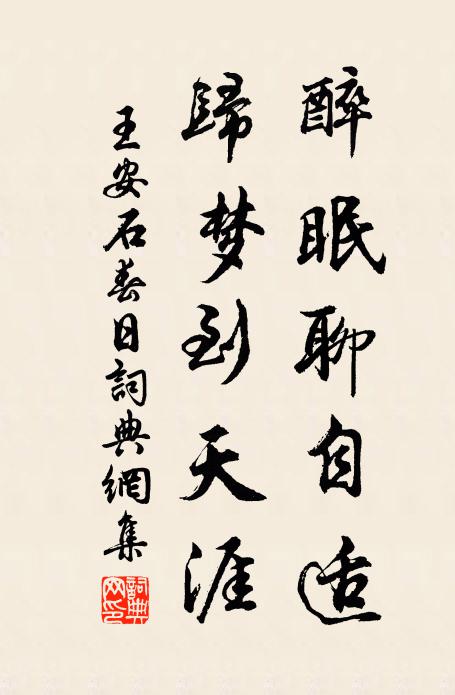 醉眠聊自适
歸梦到天涯
王安石春日詞典網集
詞典网印